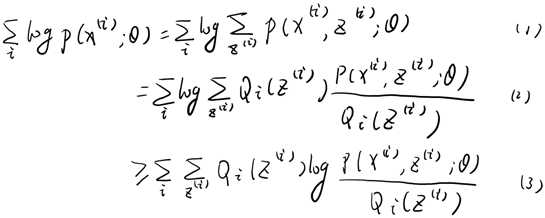 ∑_i log p(x^(i);θ) = ∑_i log ∑_{z^(i)} P(x^(i), z^(i);θ) (1)
= ∑_i log ∑_{z^(i)} Q_i(z^(i)) P(x^(i), z^(i);θ) / Q_i(z^(i)) (2)
≥ ∑_i ∑_{z^(i)} Q_i(z^(i)) log P(x^(i), z^(i);θ) / Q_i(z^(i)) (3)